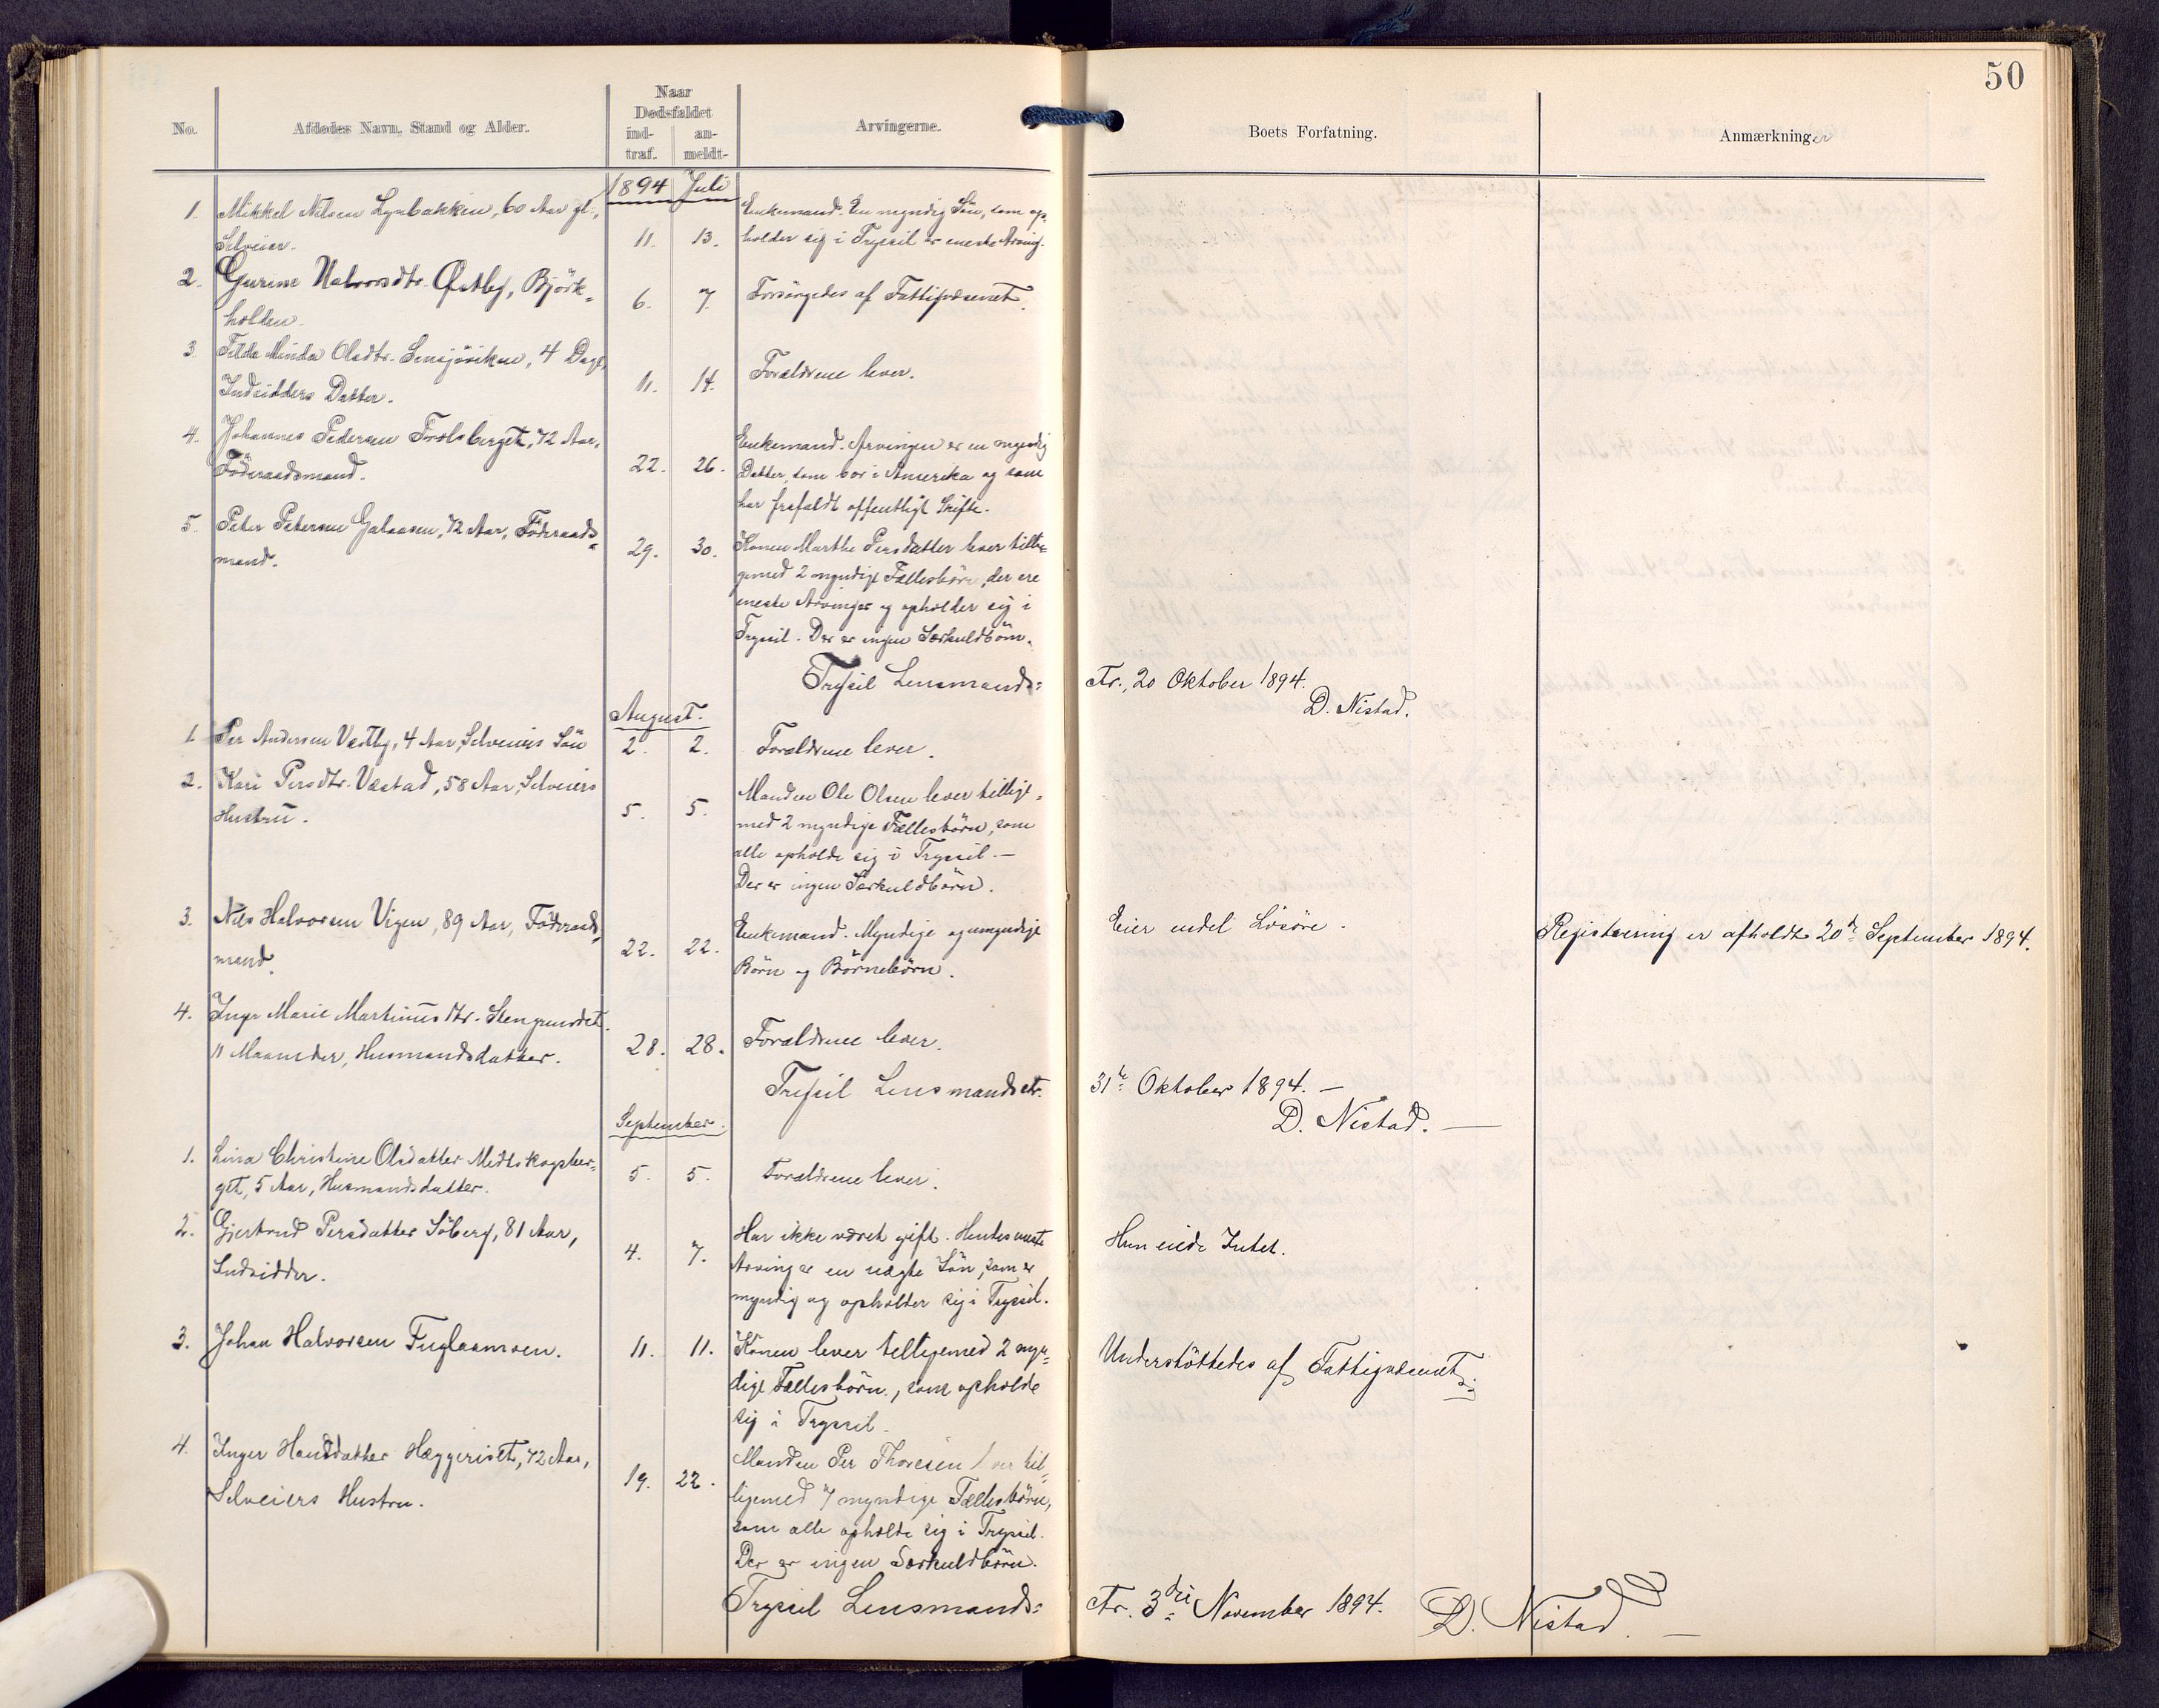 50
No.
Afdødes Navn, Stand og Alder.
Naar
Dødsfaldet
ind-
traf.
an-
meldt-
Arvingerne.
Boets Forfatning.
Anmærkninger
1894 Juli
1. Mikkel Nilsen Lynbakken, 60 Aar gl.,
Selveier.
11. 13.
Enkemand. En myndig Sön, som op-
holder sig i Trysil er eneste Arving.
2. Gurine Halvorsdtr. Östby, Björk-
holten.
6. 7.
Forsörgedes af Fattigvæsenet.
3. Tilda Minda Olsdtr. 4 Dage,
Indsidders Datter.
11. 14.
Forældrene lever.
4. Johannes Pedersen 72 Aar,
Föderaadsmand.
22. 26.
Enkemand. Arvingen er en myndig
Datter, som bor i Amerika og som
har frafaldt offentligt Skifte.
5. Peter Petersen Galaasen, 72 Aar, Föderaads-
mand.
29. 30.
Konen Marthe Persdatter lever tilli-
gemed 2 myndige Fællesbörn, der ere
eneste Arvinger og opholder sig i
Trysil. Der er ingen Særkuldbörn.
Trysil Lensmands-
ctr., 20 Oktober 1894.
D. Nistad.
August.
1. Per Andersen Vestby, 4 Aar, Selveiers Sön
2. 2.
Forældrene lever.
2. Kari Persdtr. Væstad, 58 Aar, Selveiers
Hustru.
5. 5.
Manden Ole Olsen lever tillige-
med 2 myndige Fællesbörn, som
alle opholde sig i Trysil. —
Der er ingen Særkuldbörn.
3. Nils Halvorsen Vigen, 89 Aar, Föderaads-
mand.
22. 22.
Enkemand. Myndige og umyndige
Börn og Börnebörn.
Eier endel Lösöre.
Registrering er afholdt 20de September 1894.
4. Inga Marie Martinusdtr. Stengrundet
11 Maaneder, Husmandsdatter.
28. 28.
Forældrene lever.
Trysil Lensmandsctr.
31te Oktober 1894. —
D. Nistad. —
September.
1. Lina Christine Olsdatter Medtskogsber-
get, 5 Aar, Husmandsdatter.
5. 5.
Forældrene lever.
2. Gjertrud Persdatter Söberg, 81 Aar,
Indsidder.
4. 7.
Har ikke været gift. Hendes eneste
Arving er en uægte Sön, som er
myndig og opholder sig i Trysil.
Hun eiede Intet.
3. Johan Halvorsen Fuglaamoen.
11. 11.
Konen lever tilligemed 2 myn-
dige Fællesbörn, som opholde
sig i Trysil.
Understöttedes af Fattigvæsenet.
4. Inger Hansdatter Heggeriset, 72 Aar,
Selveiers Hustru.
19. 22.
Manden Per Thoresen lever til-
ligemed 7 myndige Fællesbörn,
som alle opholde sig i Trysil.
Der er ingen Særkuldbörn.
Trysil Lensmands-
ctr. 3die November 1894. D. Nistad. —